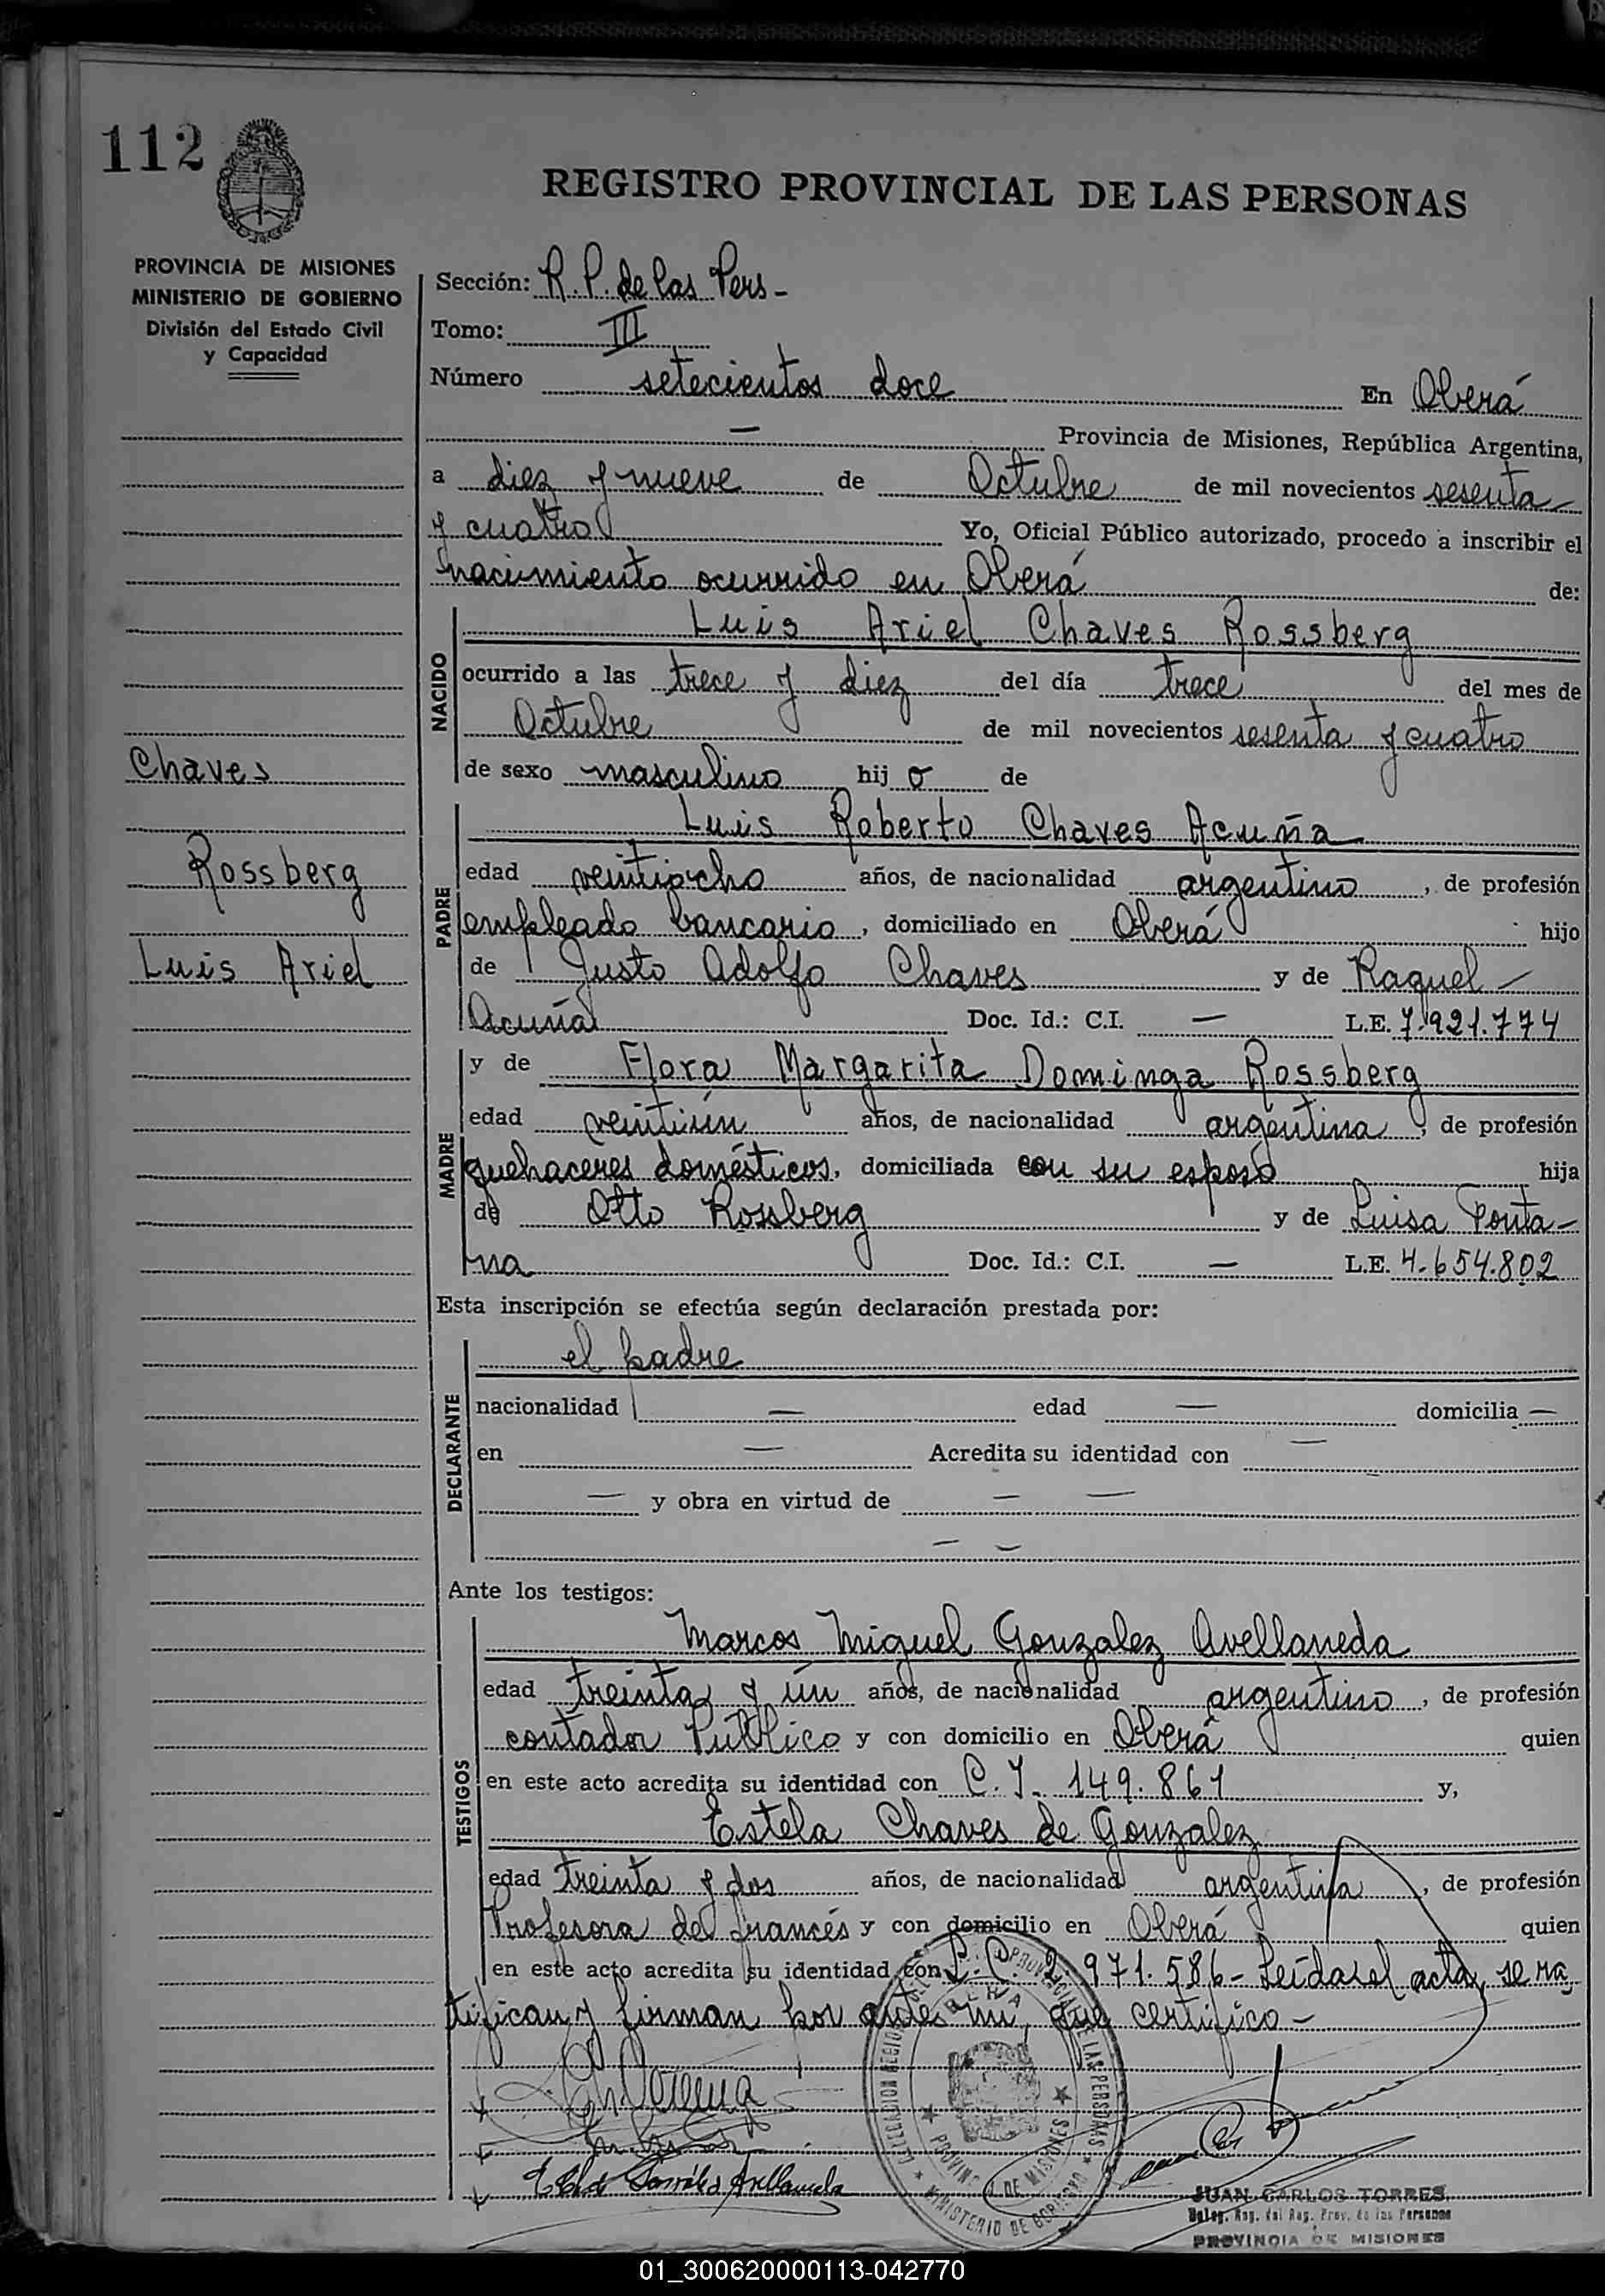 112
REGISTRO PROVINCIAL DE LAS PERSONAS
PROVINCIA DE MISIONES
MINISTERIO DE GOBIERNO
División del Estado Civil
y Capacidad
Chaves
Rossberg
Luis Ariel
Sección: R. P. de las Pers -
Tomo: III
Número setecientos doce En Oberá
— Provincia de Misiones, República Argentina,
a diez y nueve de Octubre de mil novecientos sesenta
y cuatro Yo, Oficial Público autorizado, procedo a inscribir el
nacimiento ocurrido en Oberá de:
NACIDO
Luis Ariel Chaves Rossberg
ocurrido a las trece y diez del día trece del mes de
Octubre de mil novecientos sesenta y cuatro
de sexo masculino hijo de
PADRE
Luis Roberto Chaves Acuña
edad veintiocho años, de nacionalidad argentino, de profesión
empleado bancario, domiciliado en Oberá hijo
de Justo Adolfo Chaves y de Raquel —
Acuña Doc. Id.: C.I. — L.E. 7.921.774
MADRE
y de Flora Margarita Dominga Rossberg
edad veintiún años, de nacionalidad argentina, de profesión
quehaceres domésticos, domiciliada con su esposo hija
de Otto Rossberg y de Luisa Fonta-
na Doc. Id.: C.I. — L.E. 4.654.802
Esta inscripción se efectúa según declaración prestada por:
DECLARANTE
el padre
nacionalidad — edad — domicilia —
en — Acredita su identidad con —
— y obra en virtud de — —
— —
Ante los testigos:
TESTIGOS
Marcos Miguel Gonzalez Avellaneda
edad treinta y un años, de nacionalidad argentino, de profesión
contador Público y con domicilio en Oberá quien
en este acto acredita su identidad con C. I. 149.861 y,
Estela Chaves de Gonzalez
edad treinta y dos años, de nacionalidad argentina, de profesión
Profesora de francés y con domicilio en Oberá quien
en este acto acredita su identidad con L. C. 2.971.586 - Leída el acta, se ra
tifican y firman por ante mi, que certifico -
JUAN CARLOS TORRES
Deleg. Reg. del Reg. Prov. de las Personas
PROVINCIA DE MISIONES
01_300620000113-042770